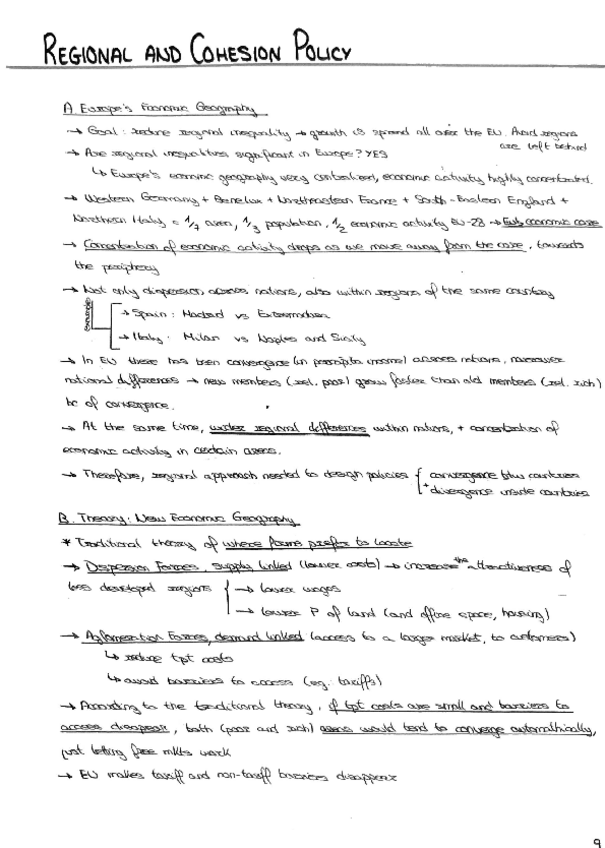 REGIONAL AND COHESION POLICY
A. Europe's Economic Geography
→ Goal: reduce regional inequality → growth is spread all over the EU. Avoid regions
are left behind
→ Are regional inequalities significant in Europe? YES
↳ Europe's economic geography very centralized, economic activity highly concentrated.
→ Western Germany + Benelux + Northeastern France + South-Eastern England +
Northern Italy = 1/7 area, 1/3 population, 1/2 economic activity EU-28 → EU's economic core
→ Concentration of economic activity drops as we move away from the core, towards
the periphery
→ Not only dispersion across nations, also within regions of the same country
example
→ Spain: Madrid vs Extremadura
→ Italy: Milan vs Naples and Sicily
→ In EU there has been convergence (in per capita income) across nations, narrower
national differences → new members (rel. poor) grow faster than old members (rel. rich)
bc of convergence.
→ At the same time, wider regional differences within nations, + concentration of
economic activity in certain areas.
→ Therefore, regional approach needed to design policies { convergence btw countries
+ divergence inside countries
B. Theory: New Economic Geography
* Traditional theory of where firms prefer to locate
→ Dispersion Forces, supply linked (lower costs) → increase the attractiveness of
less developed regions { → lower wages
→ lower P of land (and office space, housing)
→ Agglomeration Forces, demand linked (access to a larger market, to customers)
↳ reduce tpt costs
↳ avoid barriers to access (eg. tariffs)
→ According to the traditional theory, if tpt costs are small and barriers to
access disappear, both (poor and rich) areas would tend to converge automathically,
just letting free mkts work
→ EU makes tariff and non-tariff barriers disappear
9